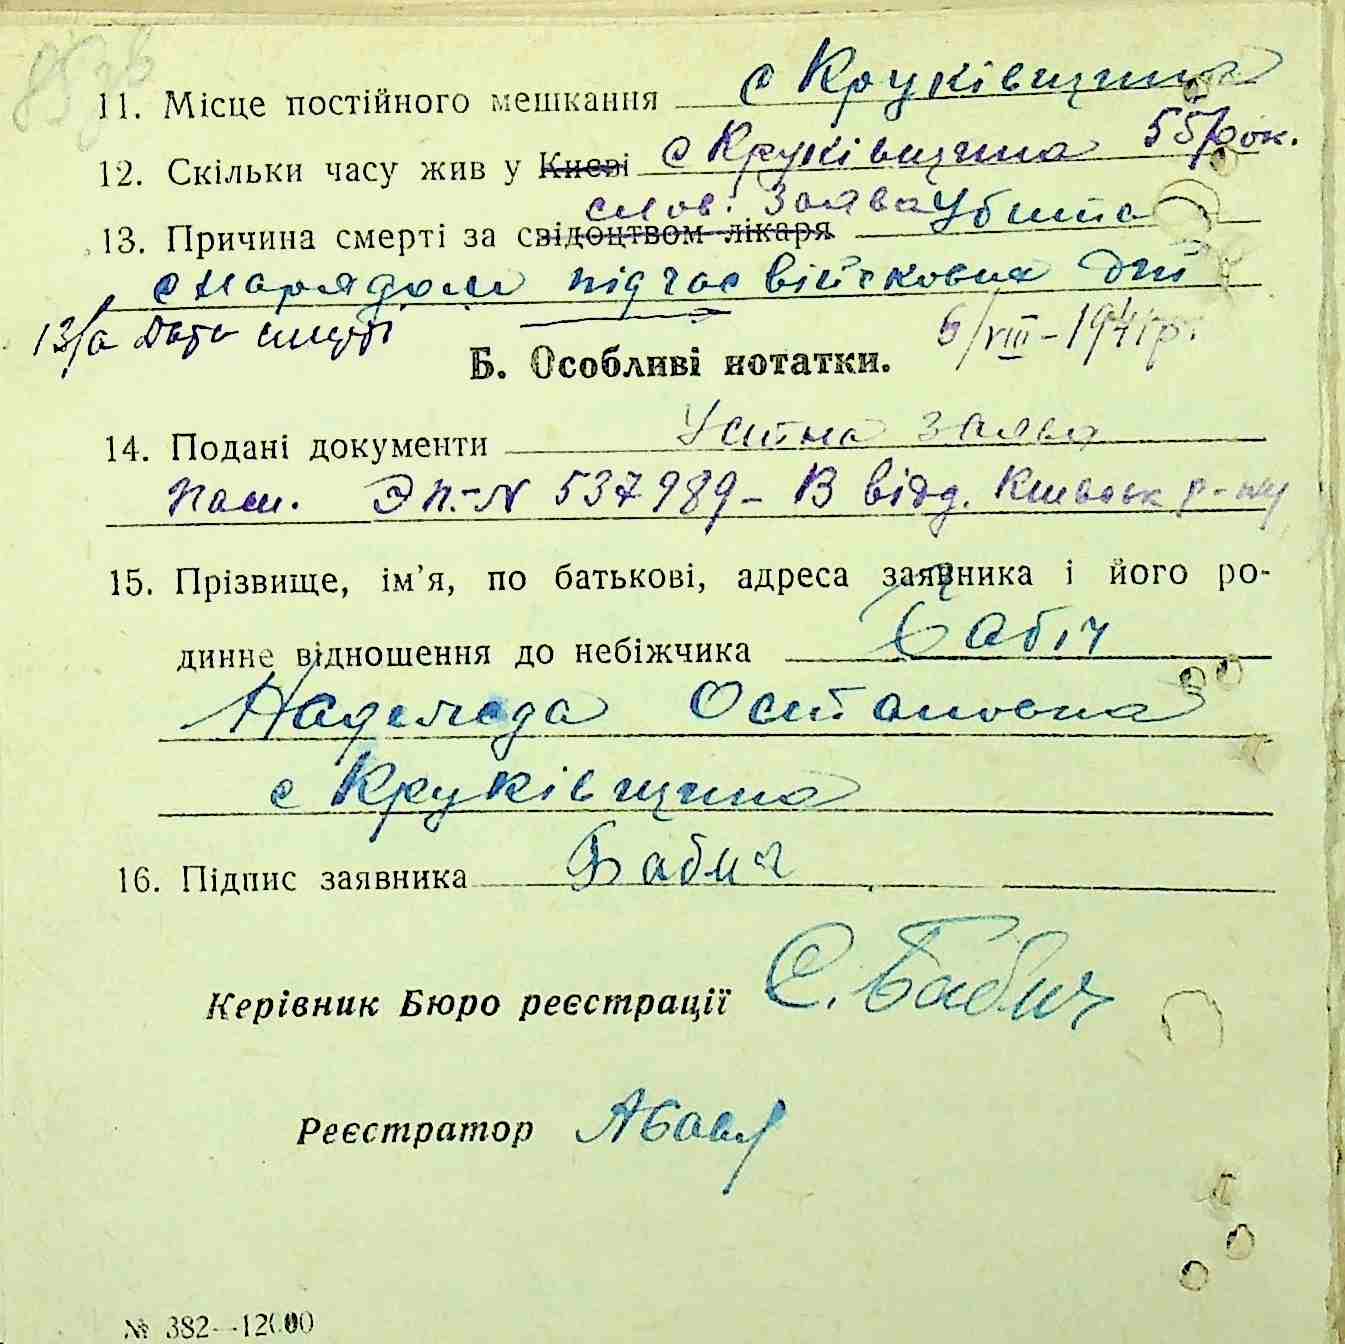 11. Місце постійного мешкання с Круківщина
12. Скільки часу жив у Києві с Круківщина 55 рок.
слов. Заява
13. Причина смерті за свідоцтвом лікаря Убита
снарядом під час військових дій
13/а Дата смерті 6/VIII–1941р.
Б. Особливі нотатки.
14. Подані документи Устна заява
Пасп. № 537989 – В відд. Київськ р-ну
15. Прізвище, ім'я, по батькові, адреса заявника і його ро-
динне відношення до небіжчика Бабіч
Надежда Остаповна
с Круківщина
16. Підпис заявника Бабич
Керівник Бюро реєстрації С. Бабич
Реєстратор
№ 382—12000